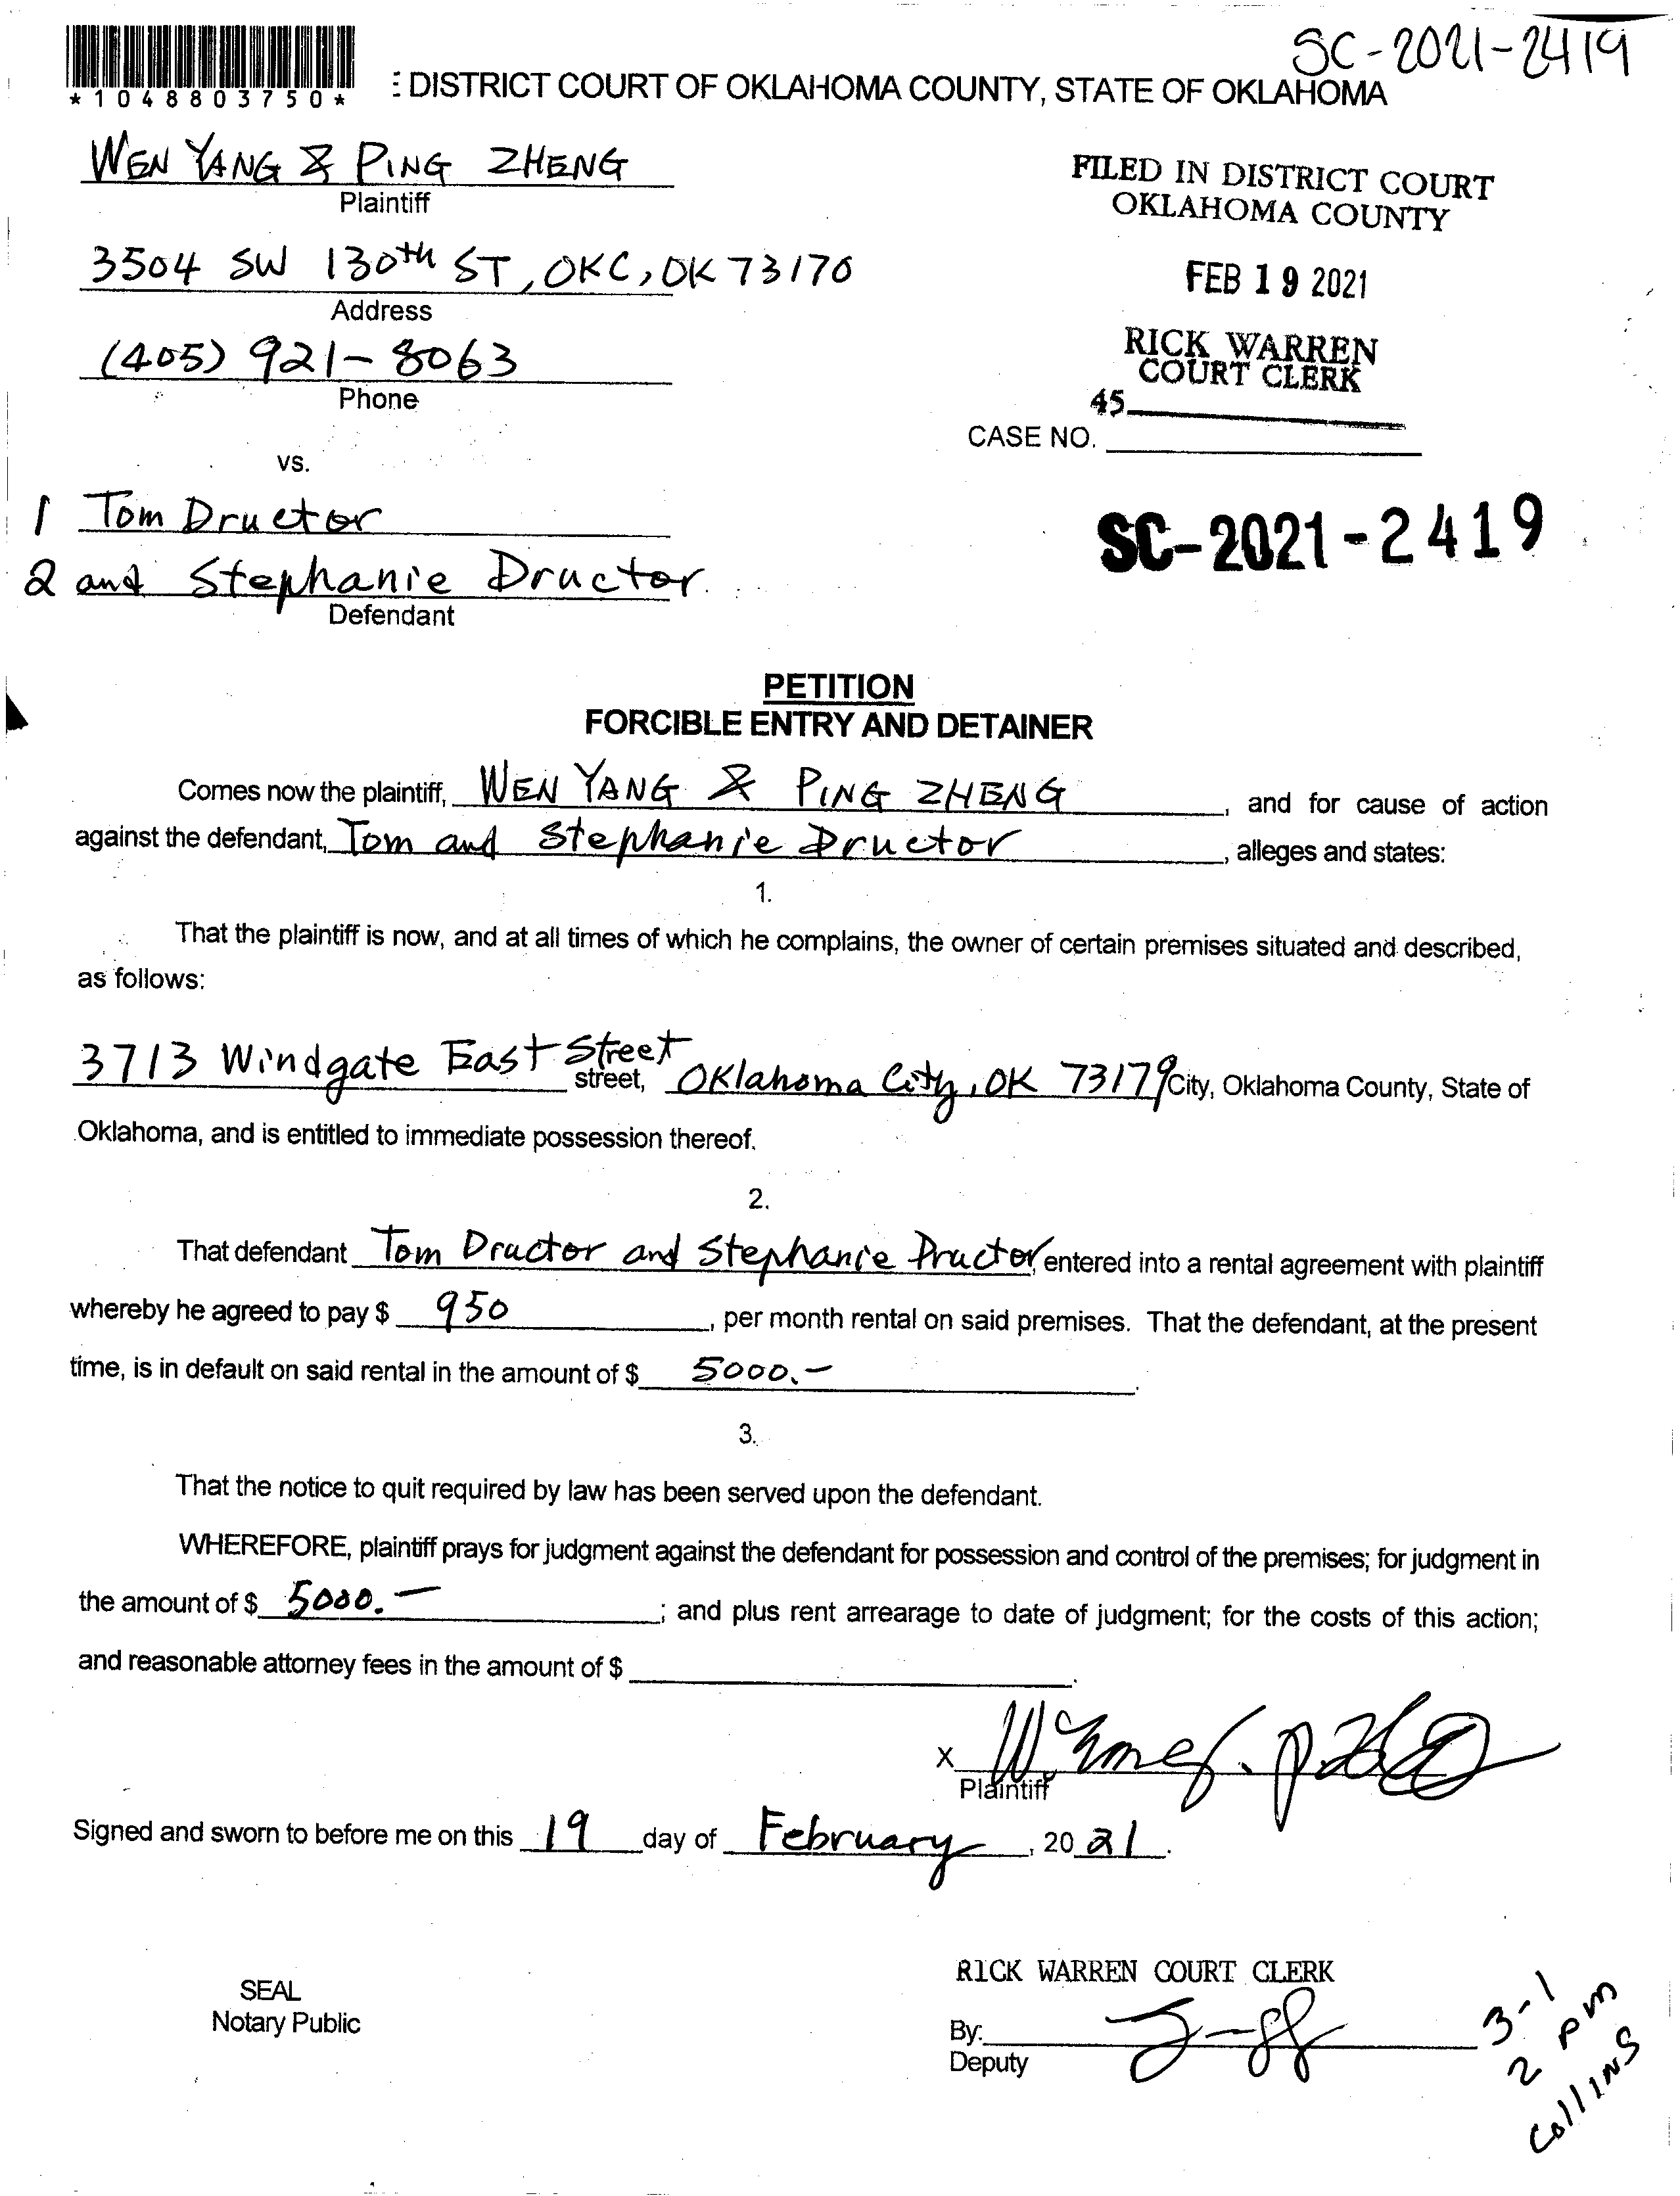 SC-2021-2419
*1048803750*
: DISTRICT COURT OF OKLAHOMA COUNTY, STATE OF OKLAHOMA
WEN YANG & PING ZHENG
Plaintiff
FILED IN DISTRICT COURT
OKLAHOMA COUNTY
3504 SW 130th ST, OKC, OK 73170
Address
FEB 19 2021
(405) 921-8063
Phone
RICK WARREN
COURT CLERK
45
CASE NO.
vs.
1 Tom Dructor
2 and Stephanie Dructor
Defendant
SC-2021-2419
PETITION
FORCIBLE ENTRY AND DETAINER
Comes now the plaintiff, WEN YANG & PING ZHENG, and for cause of action
against the defendant, Tom and Stephanie Dructor, alleges and states:
1.
That the plaintiff is now, and at all times of which he complains, the owner of certain premises situated and described,
as follows:
3713 Windgate East Street street, Oklahoma City, OK 73179 City, Oklahoma County, State of
Oklahoma, and is entitled to immediate possession thereof.
2.
That defendant Tom Dructor and Stephanie Dructor, entered into a rental agreement with plaintiff
whereby he agreed to pay $ 950, per month rental on said premises. That the defendant, at the present
time, is in default on said rental in the amount of $ 5000.-.
3.
That the notice to quit required by law has been served upon the defendant.
WHEREFORE, plaintiff prays for judgment against the defendant for possession and control of the premises; for judgment in
the amount of $ 5000.-; and plus rent arrearage to date of judgment; for the costs of this action;
and reasonable attorney fees in the amount of $ .
X
Plaintiff
Signed and sworn to before me on this 19 day of February, 2021.
SEAL
Notary Public
RICK WARREN COURT CLERK
By:
Deputy
3-1
2 pm
Collins